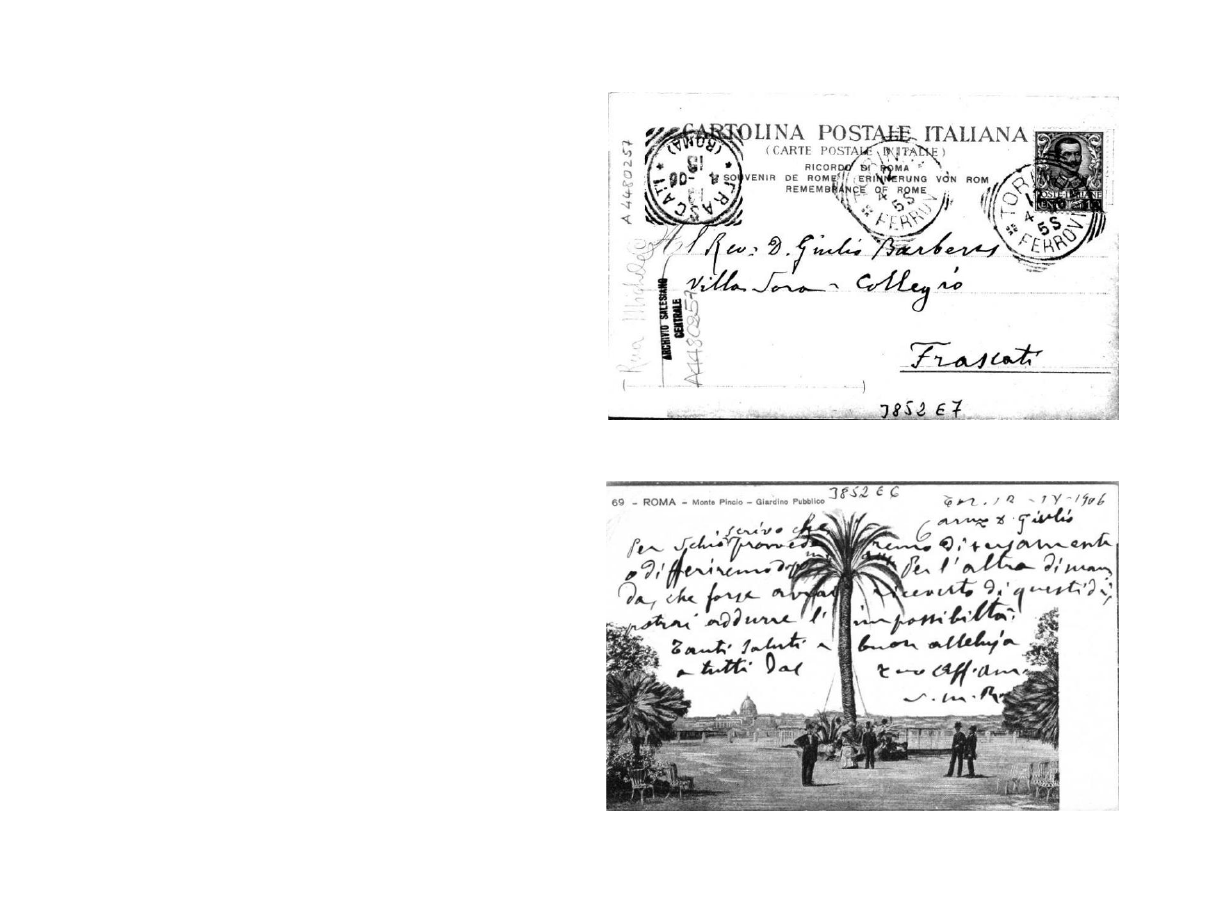 CARTOLINA POSTALE ITALIANA
(CARTE POSTALE D'ITALIE)
RICORDO DI ROMA
SOUVENIR DE ROME ERINNERUNG VON ROM
REMEMBRANCE OF ROME
FRASCATI
(ROMA)
4 - 06
13
TORINO
4 5S
FERROVIA
TORINO
4 5S
FERROVIA
POSTE ITALIANE
A 4480257
Al Rev: D. Giulio Barberis
Villa Sora - Collegio
Frascati
Rua Michele
ARCHIVIO SALESIANO
CENTRALE
A4480257
3852 E 7
69 - ROMA - Monte Pincio - Giardino Pubblico
3852 E 6
Tor. 12 - IV - 1906
Car.mo D. Giulio
scrivo che
Per Schio provvederemo diversamente
o differiremo Per l'altra diman
da, che forse avrai ricevuto di questi dì,
potrai addurre l'impossibiltà.
Tanti saluti e buon alleluja
a tutti Dal tuo aff.